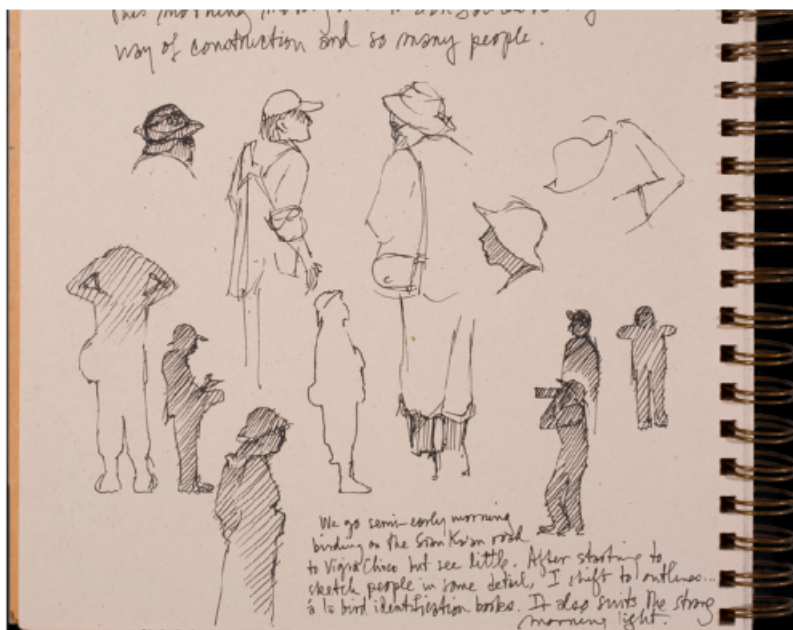 This morning
way of construction and so many people.
We go semi-early morning
birding on the Sian Ka'an road
to Vigia Chico but see little. After starting to
sketch people in some detail, I shift to outlines...
à la bird identification books. It also suits the strong
morning light.